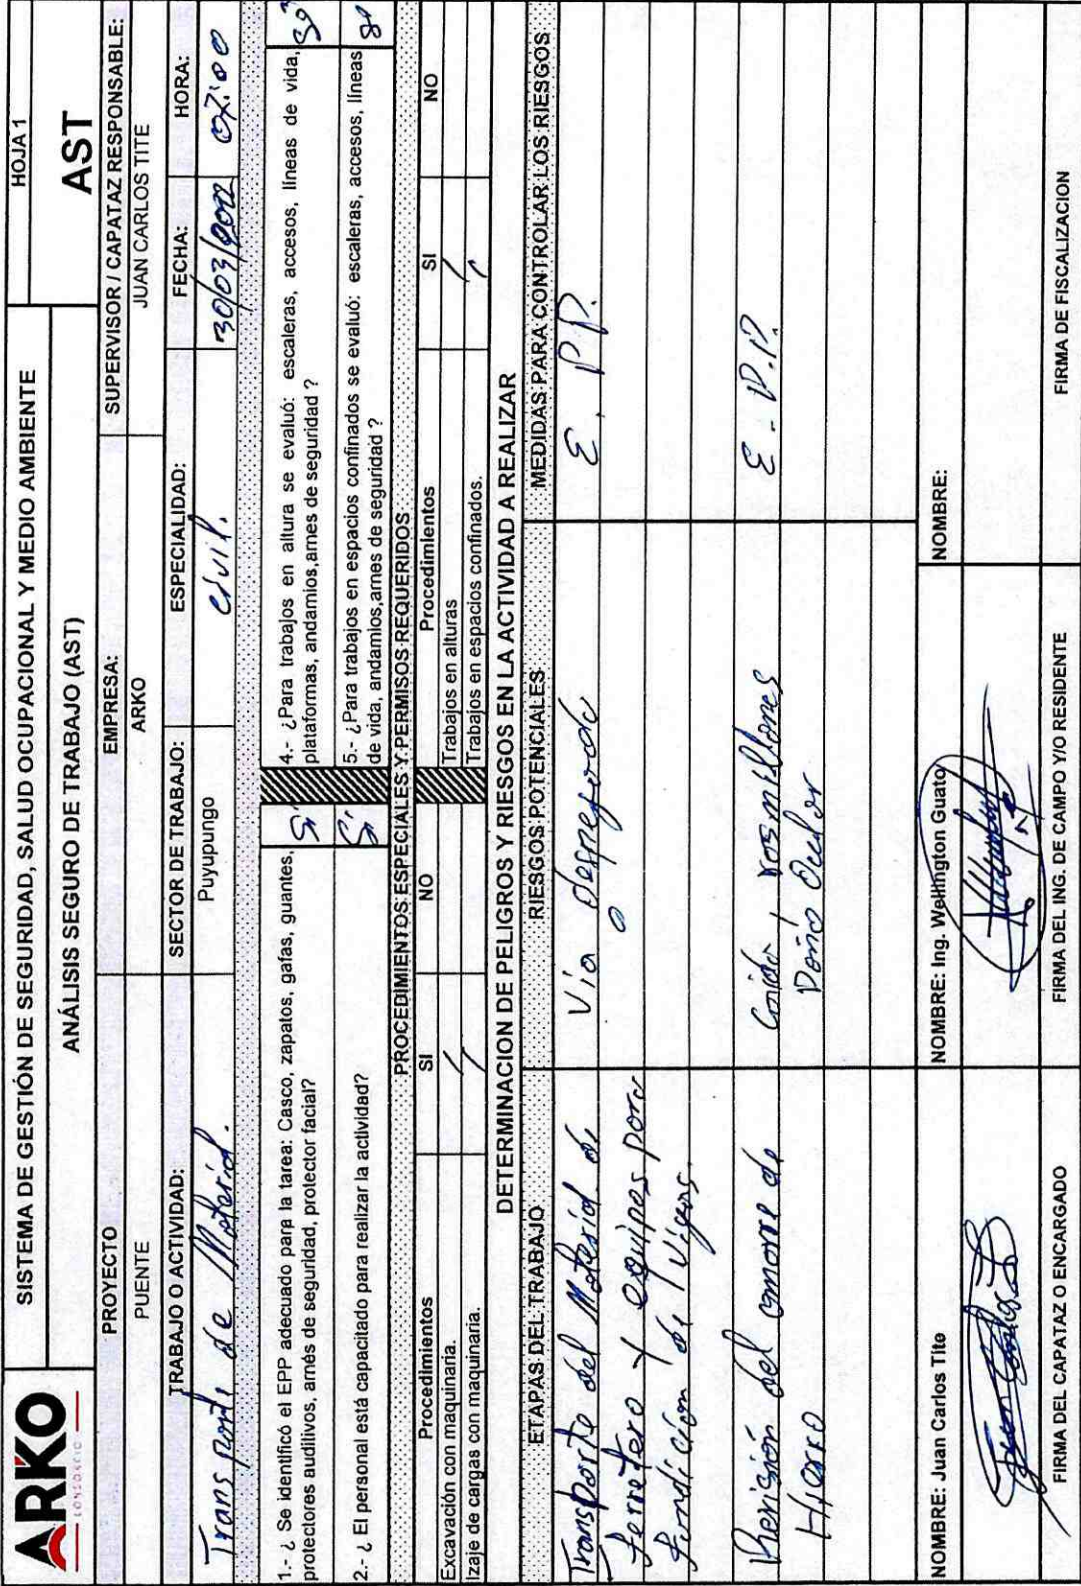 ARKO
CONSORCIO
SISTEMA DE GESTIÓN DE SEGURIDAD, SALUD OCUPACIONAL Y MEDIO AMBIENTE
HOJA 1
ANÁLISIS SEGURO DE TRABAJO (AST)
AST
PROYECTO
EMPRESA:
SUPERVISOR / CAPATAZ RESPONSABLE:
PUENTE
ARKO
JUAN CARLOS TITE
TRABAJO O ACTIVIDAD:
SECTOR DE TRABAJO:
ESPECIALIDAD:
FECHA:
HORA:
Transporte de Material.
Puyupungo
Civil.
30/03/2022
07:00
1.- ¿ Se identificó el EPP adecuado para la tarea: Casco, zapatos, gafas, guantes,
protectores auditivos, arnés de seguridad, protector facial?
Si
4.- ¿Para trabajos en altura se evaluó: escaleras, accesos, líneas de vida,
plataformas, andamios,arnes de seguridad ?
2.- ¿ El personal está capacitado para realizar la actividad?
Si
5.- ¿Para trabajos en espacios confinados se evaluó: escaleras, accesos, líneas
de vida, andamios,arnes de seguridad ?
PROCEDIMIENTOS ESPECIALES Y PERMISOS REQUERIDOS
Procedimientos
SI
NO
Procedimientos
SI
NO
Excavación con maquinaria.
/
Trabajos en alturas
/
Izaje de cargas con maquinaria.
/
Trabajos en espacios confinados.
/
DETERMINACION DE PELIGROS Y RIESGOS EN LA ACTIVIDAD A REALIZAR
ETAPAS DEL TRABAJO
RIESGOS POTENCIALES
MEDIDAS PARA CONTROLAR LOS RIESGOS
Transporte del Material de
Via
E. P.P.
ferretero y equipos para
fundición de Vigas.
Revisión del amarre de
Caida,
E. P.P.
Hierro
NOMBRE: Juan Carlos Tite
NOMBRE: Ing. Wellington Guato
NOMBRE:
FIRMA DEL CAPATAZ O ENCARGADO
FIRMA DEL ING. DE CAMPO Y/O RESIDENTE
FIRMA DE FISCALIZACION